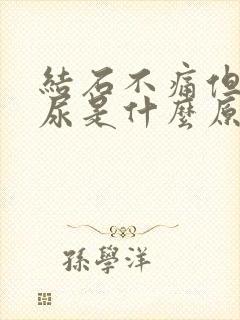 結石不痛但
尿是什麼原
孫學洋